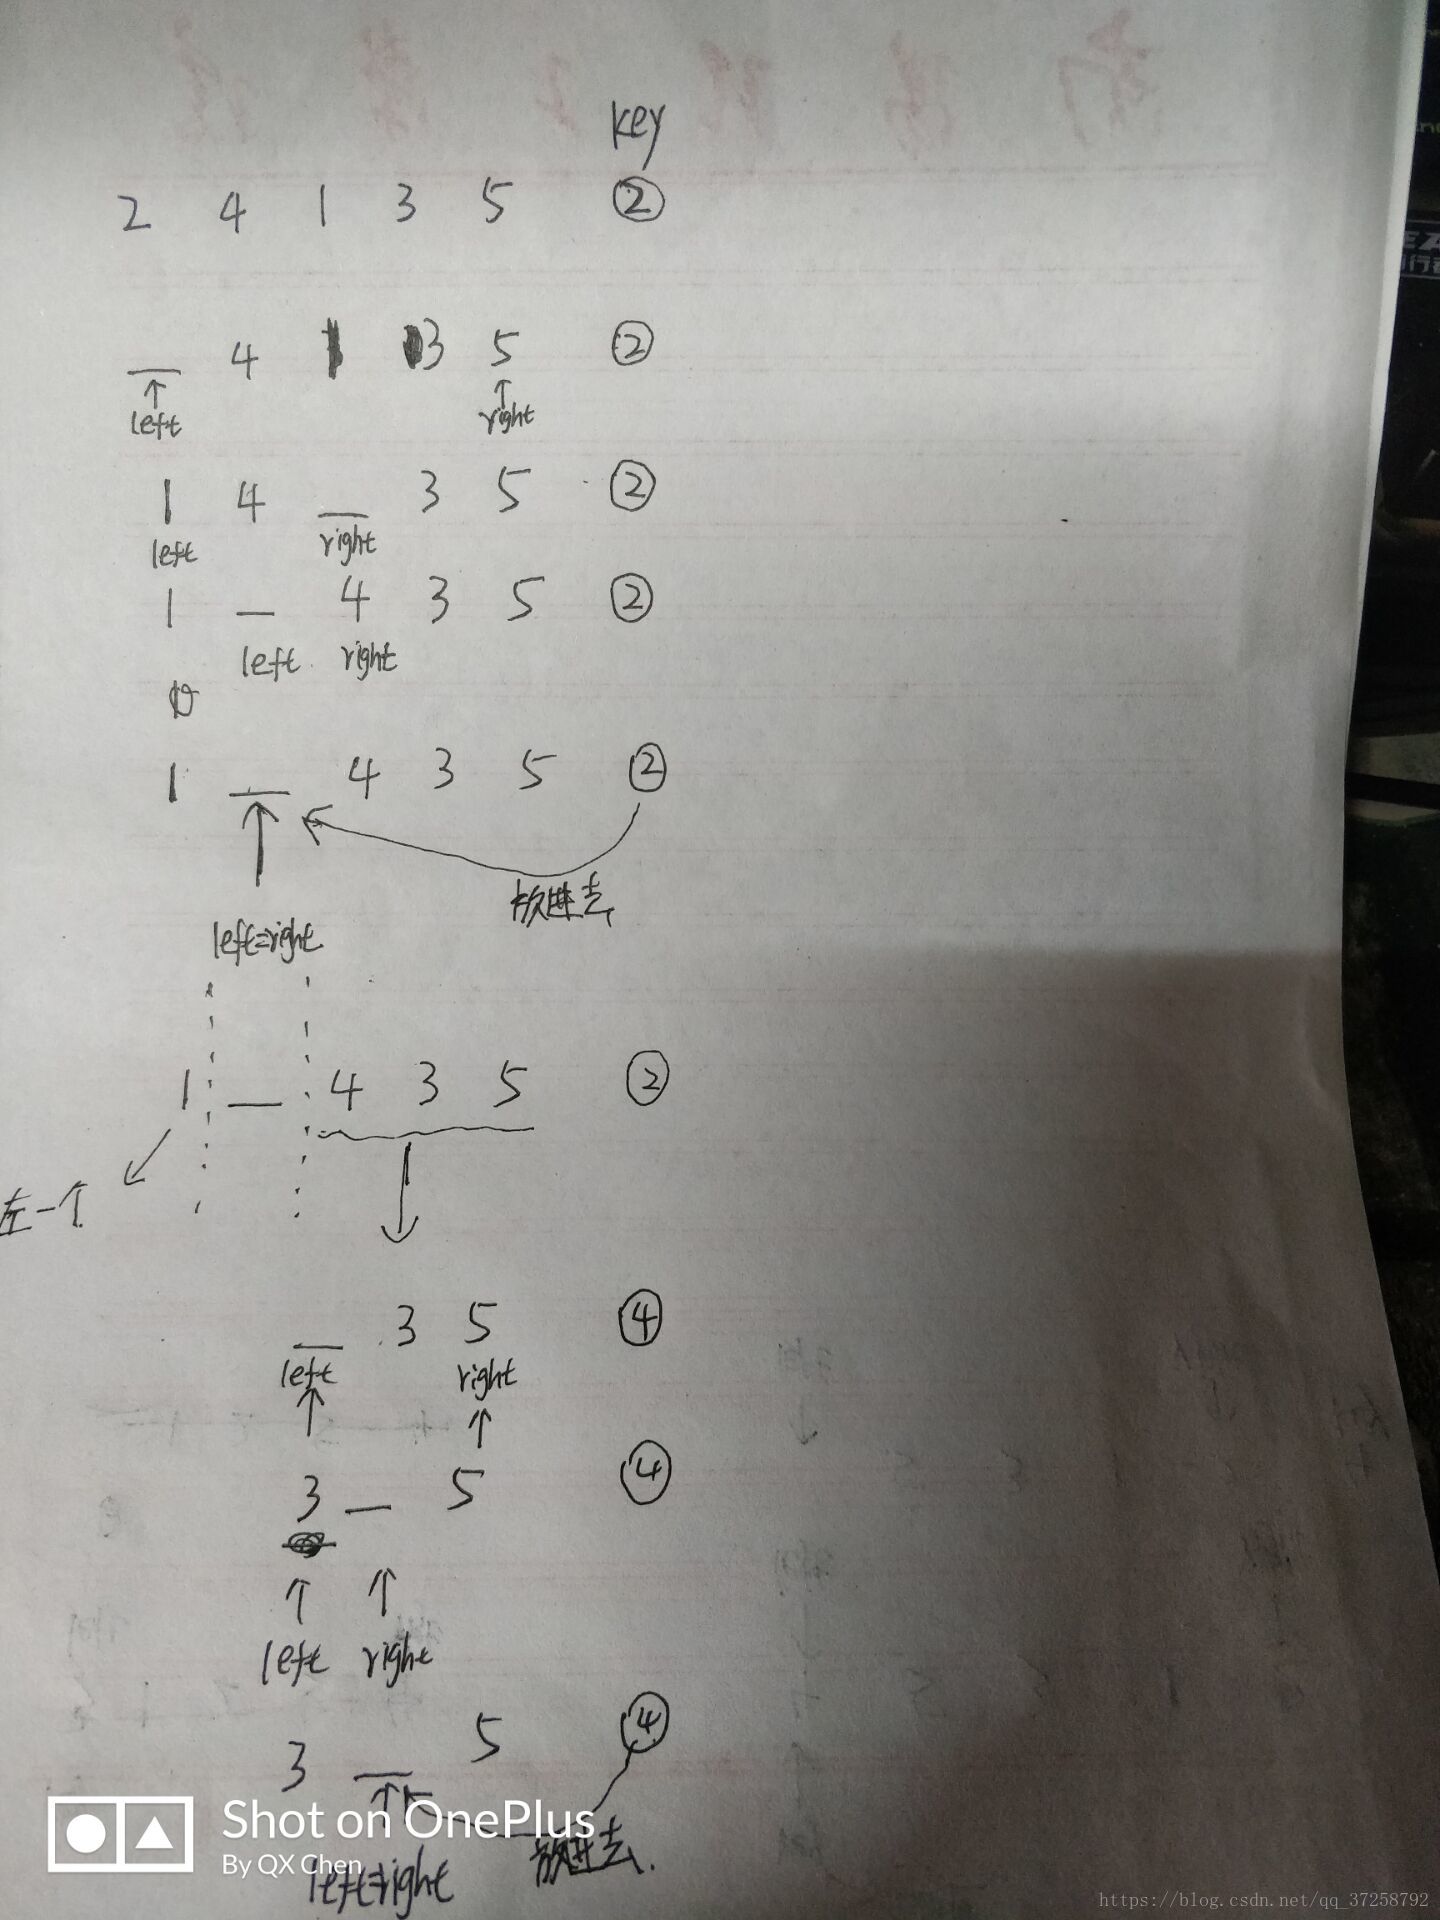 key
2 4 1 3 5 ②
__ 4 1 3 5 ②
↑ ↑
left right
1 4 __ 3 5 ②
left right
1 __ 4 3 5 ②
left right
1 __ 4 3 5 ②
放进去
left=right
1 __ 4 3 5 ②
左一个
__ 3 5 ④
left right
3 __ 5 ④
left right
3 __ 5 ④
Shot on OnePlus
By QX Chen
放进去.
left=right
https://blog.csdn.net/qq_37258792